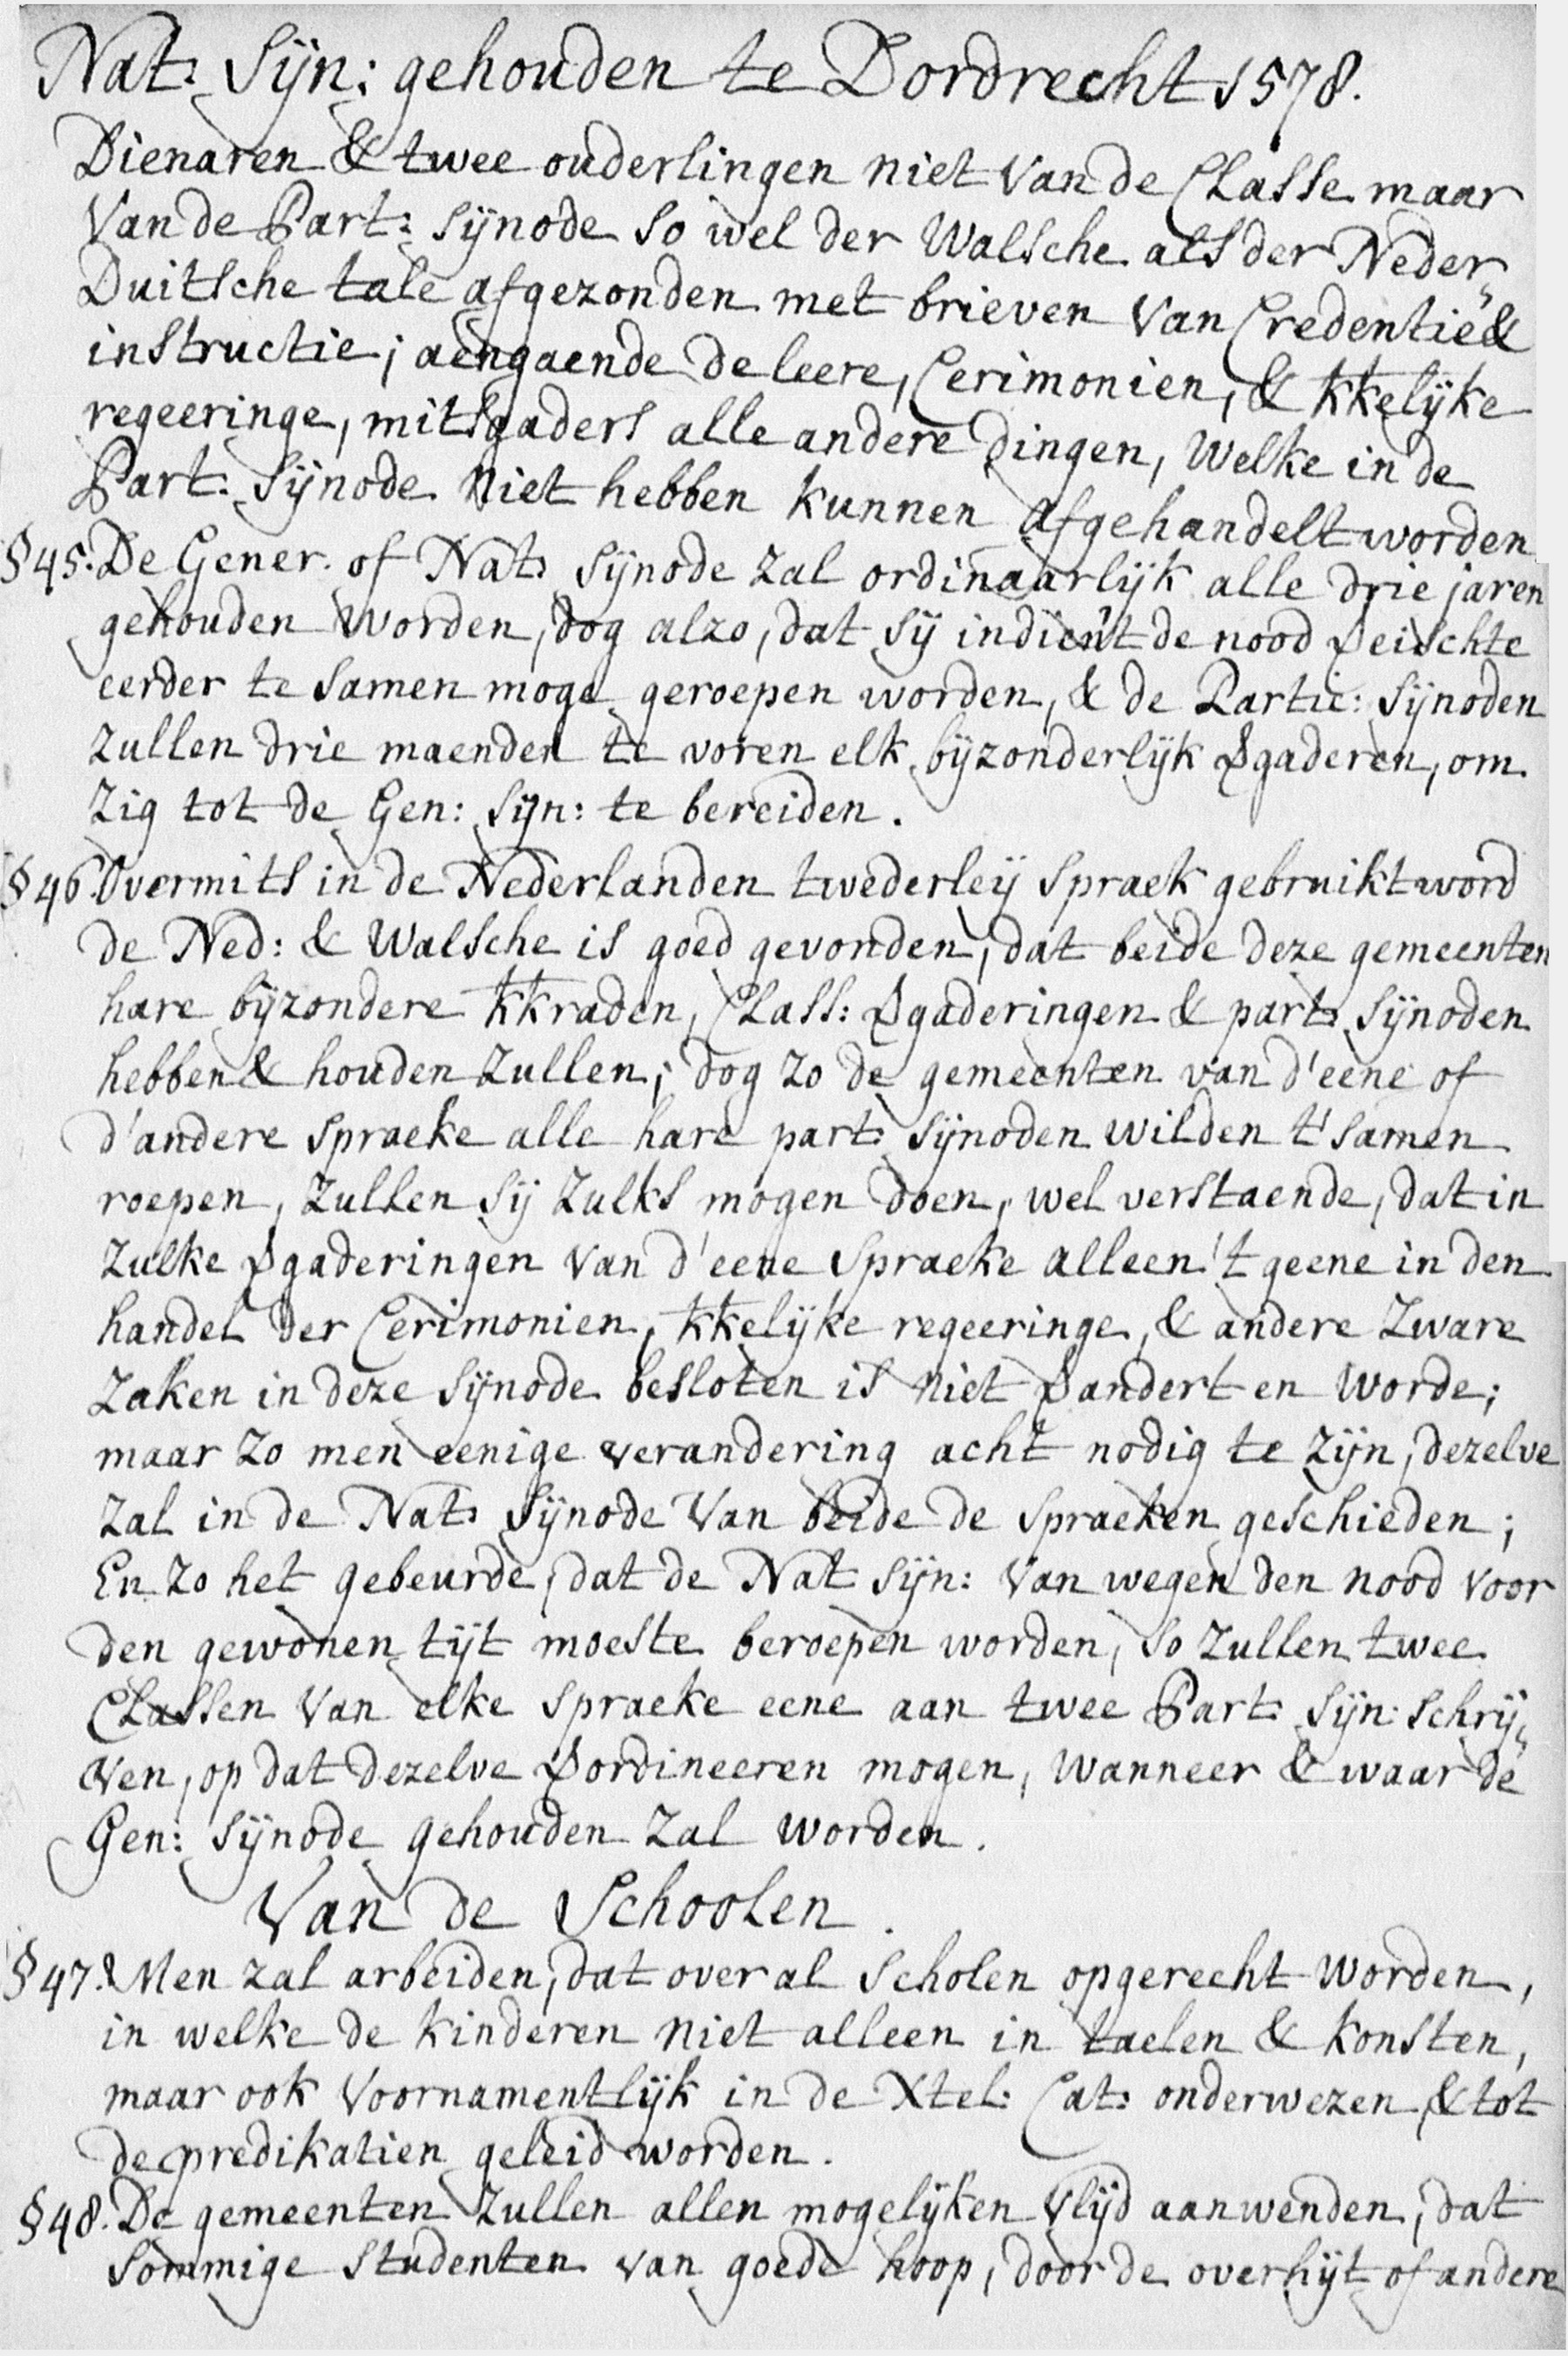 Nat: Sÿn: gehouden te Dordrecht 1578.
Dienaren & twee ouderlingen niet Van de Classe maar
Van de Part: Sÿnode So wel der Walsche als der Neder„
Duitsche tale afgezonden met brieven Van Credentie &
instructie; aengaende De leere, Cerimonien, & kkelÿke
regeeringe, mitsgaders alle andere Dingen, Welke in de
Part: Sÿnode niet hebben kunnen afgehandelt worden
§ 45. De Gener. of Nat: Sÿnode zal ordinaarlÿk alle drie jaren
gehouden Worden, dog alzo, dat Sÿ indien't de nood Veischte
eerder te Samen moge geroepen worden, & de Partic: Sÿnoden
zullen drie maenden te voren elk bÿzonderlÿk Vgaderen, om
Zig tot de Gen: Sÿn: te bereiden.
§ 46. Overmits in de Nederlanden twederleÿ Spraek gebruikt word
de Ned: & Walsche is goed gevonden, dat beide deze gemeenten
hare bÿzondere kkraden, Class: Vgaderingen & part: Sÿnoden
hebben & houden zullen; dog zo de gemeenten van d'eene of
d'andere Spraeke alle hare part: Sÿnoden wilden t'samen
roepen, zullen Sÿ zulks mogen doen, wel verstaende, dat in
zulke Vgaderingen Van d'eene Spraeke alleen 't geene in den
handel der Cerimonien, kkelÿke regeeringe, & andere Zware
Zaken in deze Sÿnode besloten is niet Vandert en Worde;
maar zo men eenige verandering acht nodig te zÿn, dezelve
zal in de Nat: Sÿnode Van beide de Spraeken geschieden;
En zo het gebeurde, dat de Nat: Sÿn: Van wegen den nood voor
den gewonen tÿt moeste beroepen worden, So zullen twee
Classen Van elke Spraeke eene aan twee Part: Sÿn: Schrÿ„
ven, op dat dezelve Vordineeren mogen, Wanneer & waar de
Gen: Sÿnode gehouden zal worden.
Van de Schoolen.
§ 47. Men zal arbeiden, dat over al Scholen opgerecht Worden,
in welke de kinderen niet alleen in taelen & konsten,
maar ook Voornamentlÿk in de Xtel: Cat: onderwezen & tot
de predikatien geleid worden.
§ 48. De gemeenten zullen allen mogelÿken Vlÿd aanwenden, dat
Sommige Studenten van goede hoop, door de overhÿt of andere